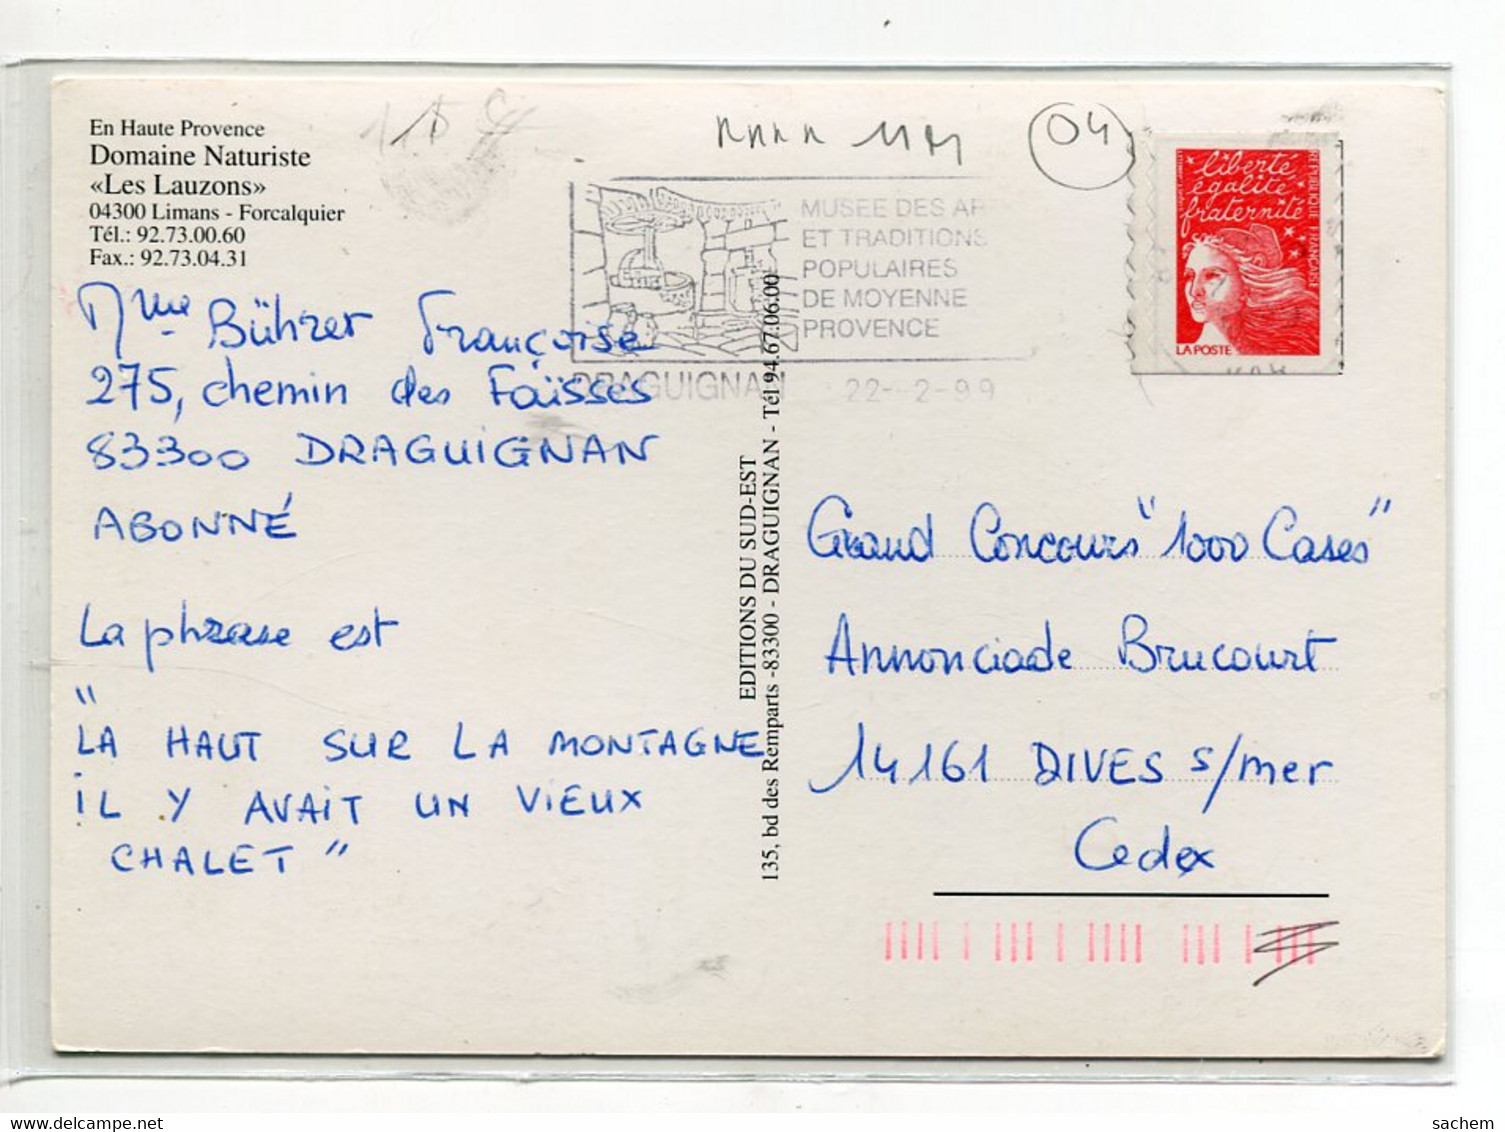 En Haute Provence
Domaine Naturiste
«Les Lauzons»
04300 Limans - Forcalquier
Tél.: 92.73.00.60
Fax.: 92.73.04.31
04
MUSEE DES AR
ET TRADITIONS
POPULAIRES
DE MOYENNE
PROVENCE
DRAGUIGNAN 22-2-99
liberté
égalité
fraternité
REPUBLIQUE FRANÇAISE
LA POSTE
Mme Bührer Françoise
275, chemin des Faïsses
83300 DRAGUIGNAN
ABONNÉ
La phrase est
"
LA HAUT SUR LA MONTAGNE
IL Y AVAIT UN VIEUX
CHALET"
EDITIONS DU SUD-EST
135, bd des Remparts -83300 - DRAGUIGNAN - Tél 94.67.06.00
Grand Concours "1000 Cases"
Annonciade Brucourt
14161 DIVES s/mer
Cedex
sachem